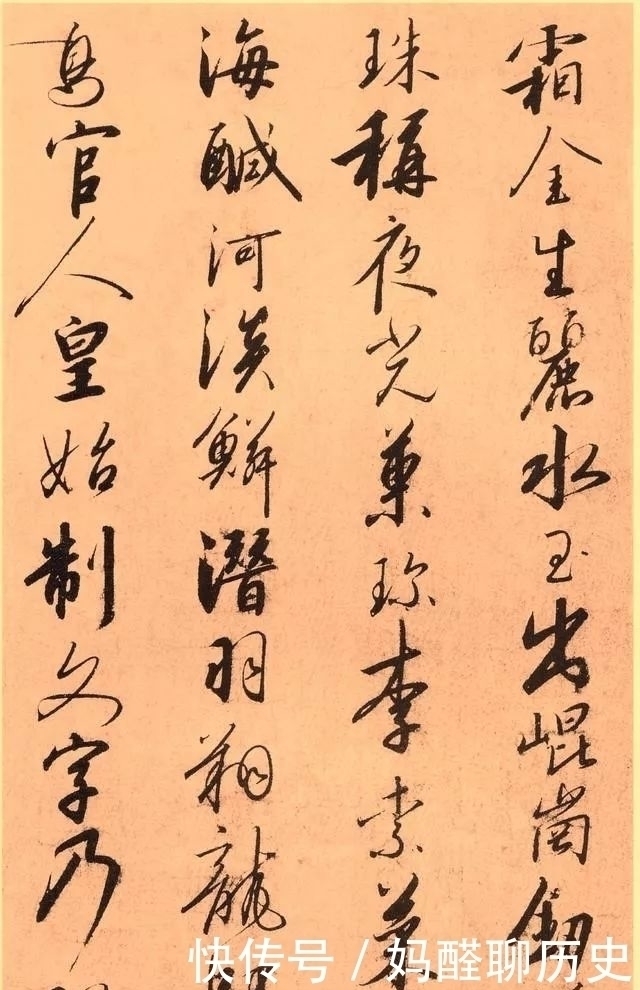 霜金生麗水玉出崐崗
珠稱夜光菓珍李柰菜
海鹹河淡鱗潛羽翔龍
鳥官人皇始制文字乃
快传号 / 妈醛聊历史